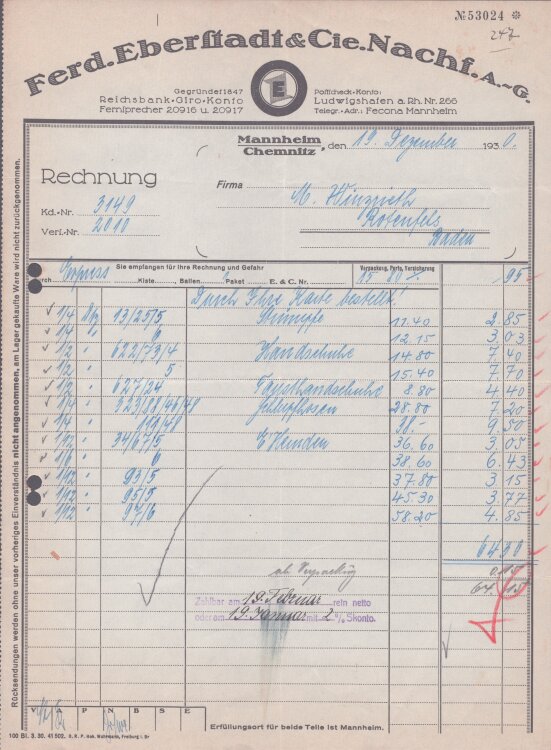 № 53024 ✻
247
Ferd. Eberstadt & Cie. Nachf. A.-G.
Gegründet 1847
Reichsbank-Giro-Konto
Fernsprecher 20916 u. 20917
E
Postscheck-Konto:
Ludwigshafen a. Rh. Nr. 266
Telegr.-Adr.: Fecona Mannheim
Mannheim
Chemnitz, den 19. Dezember 1930.
Rechnung
Firma
Kd.-Nr. 3149
Verf.-Nr. 2010
Rotenfels
Baden
Sie empfangen für Ihre Rechnung und Gefahr
Verpackung, Porto, Versicherung
durch Express Kiste Ballen Paket E. & C. Nr. 15 80% -.95
Durch Ihre Karte bestellt:
1/4 13/25/5 Strümpfe 11.40 2.85
1/4 6 12.15 3.03
1/2 " 622/73/4 Handschuhe 14.80 7.40
1/2 " 5 15.40 7.70
1/2 " 627/24 Fausthandschuhe 8.80 4.40
1/4 " 323/28/46/48 Schlupfhosen 28.80 7.20
1/4 " 38.- 9.50
1/12 " 34/67/5 E Hemden 36.60 3.05
1/6 " 6 38.60 6.43
1/12 " 93/5 37.80 3.15
1/12 " 95/5 45.30 3.77
1/12 " 97/6 58.20 4.85
64.30
ab Verpackung 0.15
64.15
Zahlbar am 19. Februar rein netto
oder am 19. Januar mit 2 % Skonto.
Rücksendungen werden ohne unser vorheriges Einverständnis nicht angenommen, am Lager gekaufte Ware wird nicht zurückgenommen.
V A P N B S E
Erfüllungsort für beide Teile ist Mannheim.
100 Bl. 3. 30. 41 502. D. R. P. Geb. Muhrmann, Freiburg i. Br